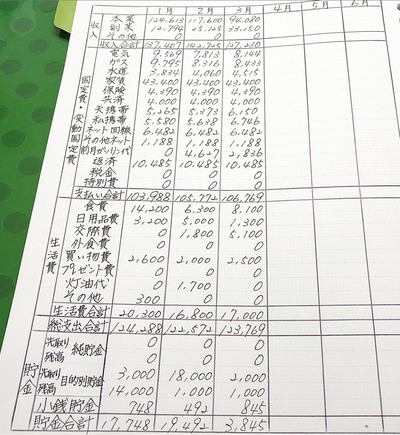 1月 2月 3月 4月 5月 6月
収入
本業 124,613 117,600 94,080
副業 12,794 25,125 33,150
その他 0 0 0
収入合計 137,407 142,725 127,230
固定費・変動固定費
電気 9,569 7,813 8,144
ガス 9,795 8,316 8,433
水道 3,834 4,060 4,515
家賃 43,400 43,400 43,400
保険 4,390 4,390 4,390
共済 4,000 4,000 4,000
夫携帯 5,265 5,373 6,150
私携帯 5,580 5,638 6,746
ネット回線 6,482 6,482 6,482
その他ネット 1,188 1,188 1,188
前月ガソリン代 0 4,627 2,836
返済 10,485 10,485 10,485
税金 0 0 0
特別費 0 0 0
支払い合計 103,988 105,772 106,769
生活費
食費 14,200 6,300 8,100
日用品費 3,200 5,000 1,300
交際費 0 1,800 5,100
外食費 0 0 0
買い物費 2,600 2,000 2,500
プレゼント費 0 0 0
灯油代 0 1,700 0
その他 300 0 0
生活費合計 20,300 16,800 17,000
総支出合計 124,288 122,572 123,769
貯金
先取り 純貯金 0 0 0
残高 0 0 0
先取り 目的別貯金 3,000 18,000 2,000
残高 14,000 1,000 1,000
小銭貯金 748 492 845
貯金合計 17,748 19,492 3,845